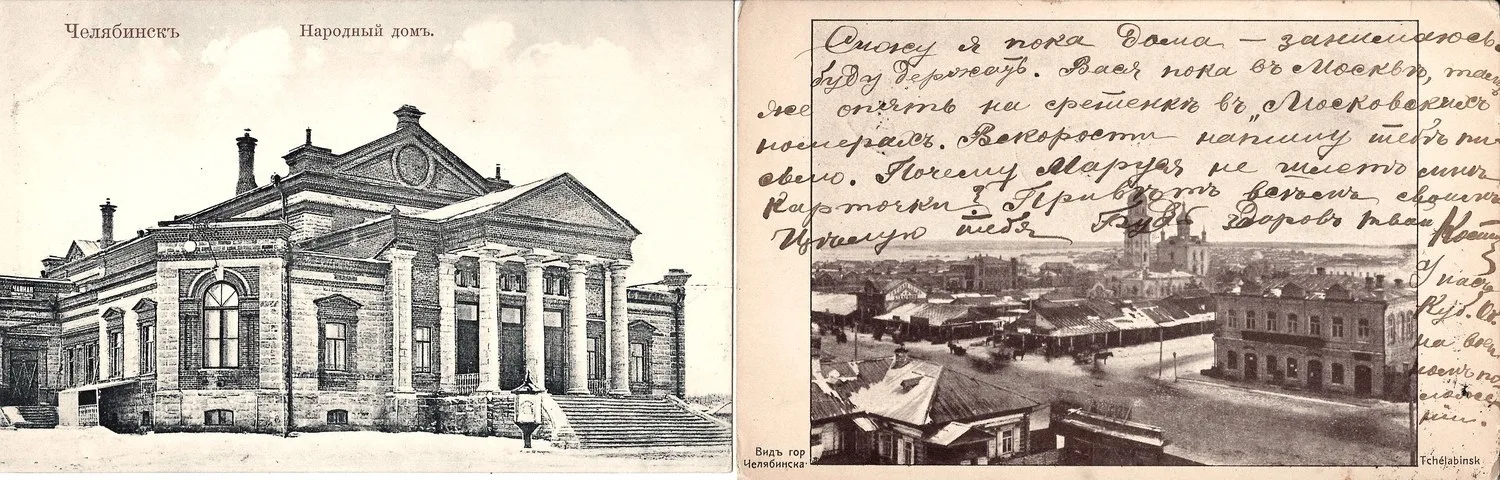 Челябинскъ
Народный домъ.
Сижу я пока дома — занимаюсь.
буду держать. Вася пока въ Москвѣ, тамъ
же опять на срѣтенкѣ въ „Московскихъ
номерахъ. Вскорости напишу тебѣ пи-
сьмо. Почему Маруся не шлетъ мнѣ
карточки? Привѣтъ всѣмъ своимъ
Цѣлую тебя Будь здоровъ твой Костя
У насъ
на воен
номъ по
Видъ гор
Челябинска
Tchélabinsk